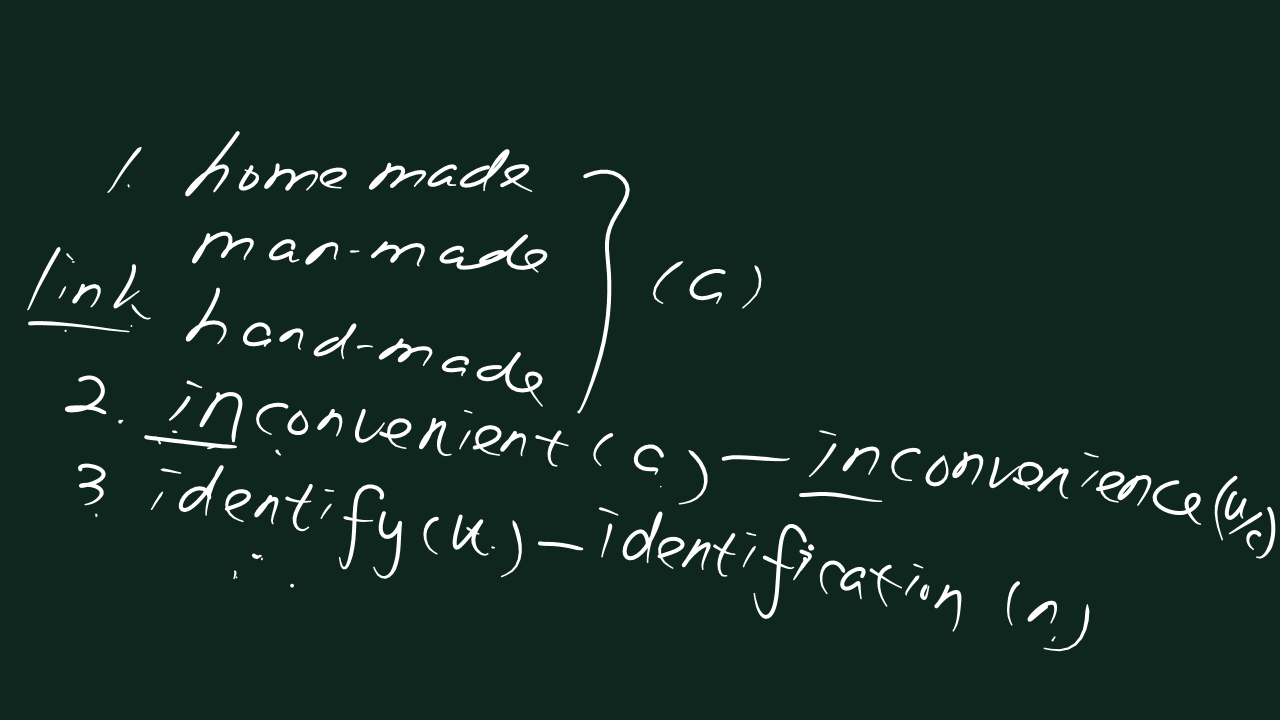 1. homemade
man-made
link
hand-made
(a)
2. inconvenient (a.) — inconvenience (u/c)
3. identify (v.) — identification (n.)